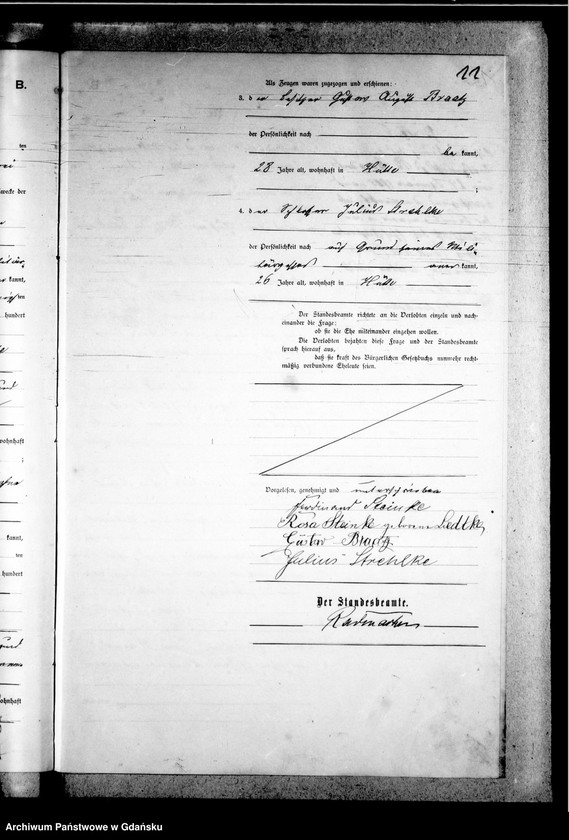 B.
11
Als Zeugen waren zugezogen und erschienen:
3. der Besitzer Gustav August Braatz
der Persönlichkeit nach
be kannt,
28 Jahre alt, wohnhaft in Hütte
;
4. der Julius Strehlke
der Persönlichkeit nach auf Grund seines Mili-
anerkannt,
26 Jahre alt, wohnhaft in Hütte
Der Standesbeamte richtete an die Verlobten einzeln und nach-
einander die Frage:
ob sie die Ehe miteinander eingehen wollen.
Die Verlobten bejahten diese Frage und der Standesbeamte
sprach hierauf aus,
daß sie kraft des Bürgerlichen Gesetzbuchs nunmehr recht-
mäßig verbundene Eheleute seien.
Vorgelesen, genehmigt und unterschrieben
Ferdinand Steinke
Rosa Steinke geborene Liedtke
Gustav Braatz
Julius Strehlke
Der Standesbeamte.
Radmacher
Archiwum Państwowe w Gdańsku